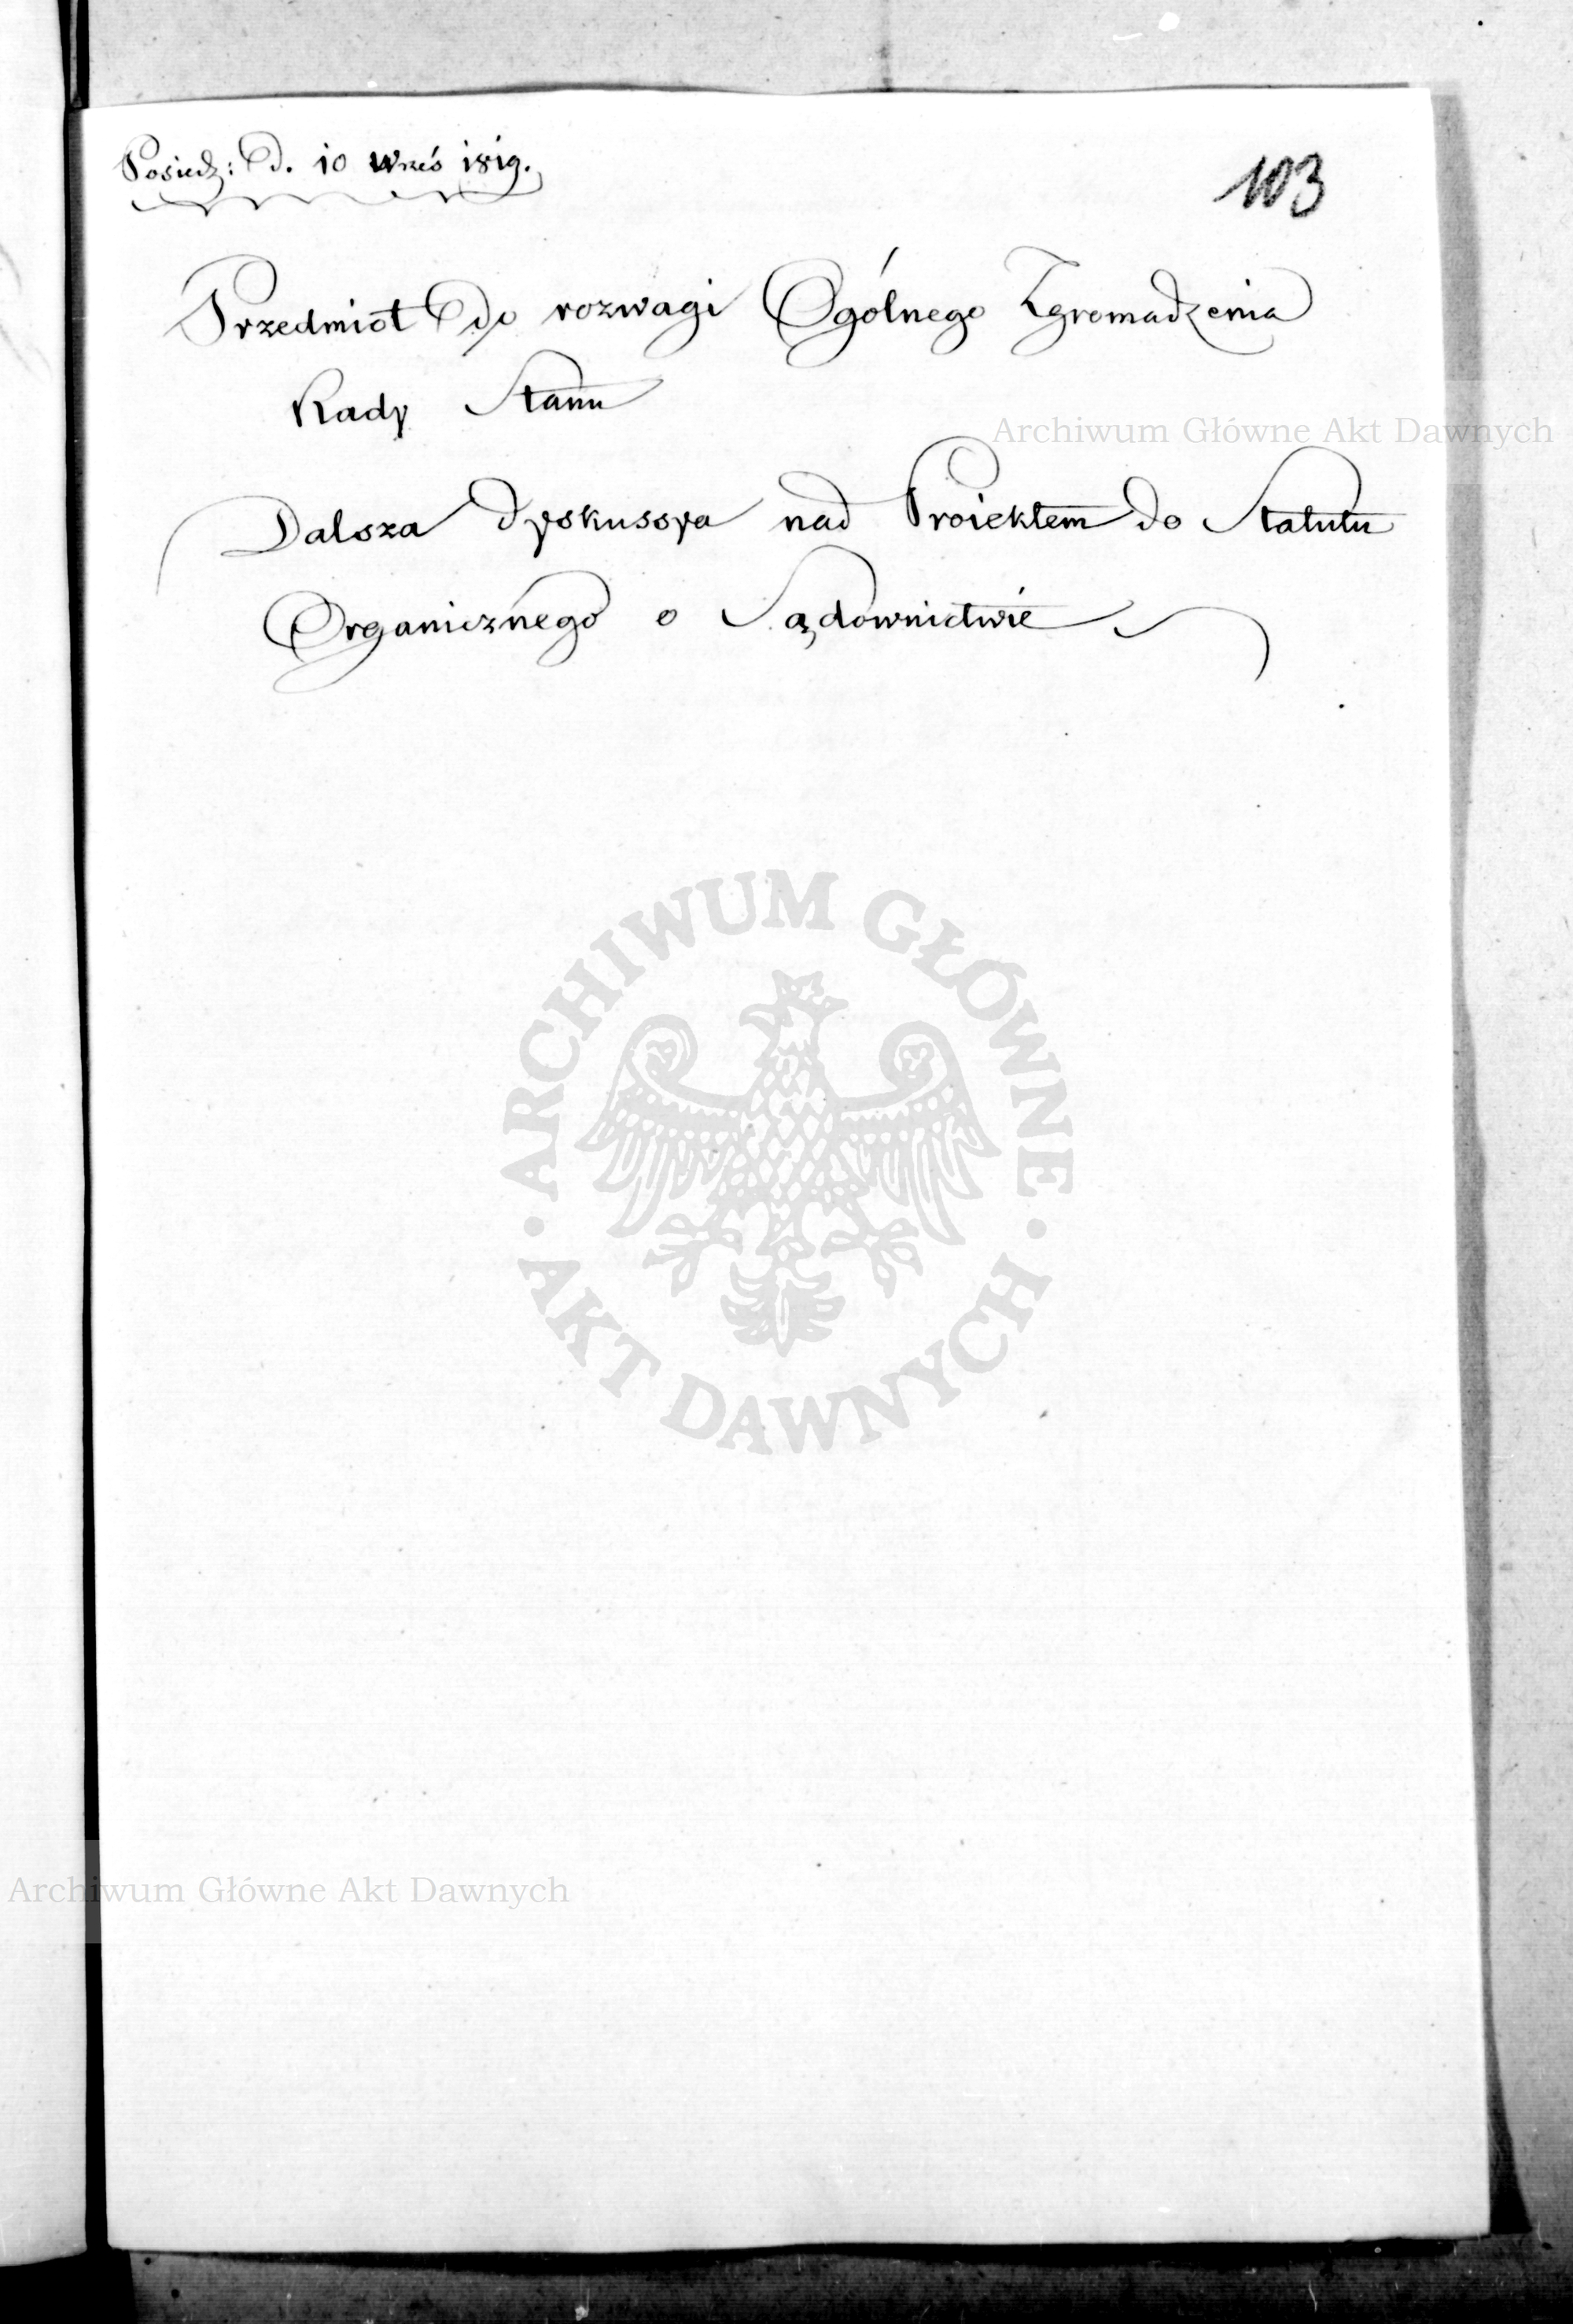 Posiedz: d. 10 Wrześ 1819.
103
Przedmiot do rozwagi Ogólnego Zgromadzenia
Rady Stanu
Archiwum Główne Akt Dawnych
Dalsza dyskussya nad Proiektem do Statutu
Organicznego o Sądownictwie
ARCHIWUM GŁÓWNE
AKT DAWNYCH
Archiwum Główne Akt Dawnych